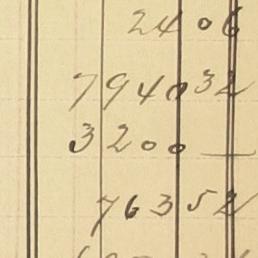 24 06
7940 32
3200 —
763 52